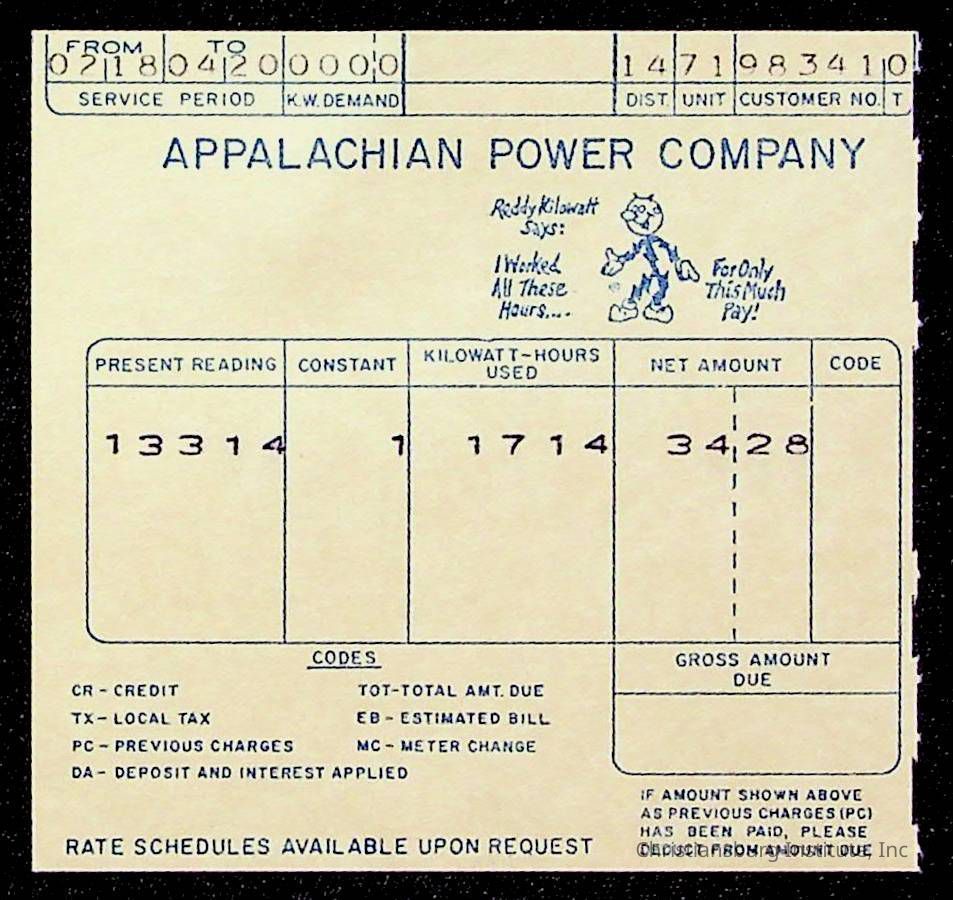 FROM TO
02 18 04 20 0000 14 71 983410
SERVICE PERIOD K.W. DEMAND DIST. UNIT CUSTOMER NO. T
APPALACHIAN POWER COMPANY
Reddy Kilowatt
Says:
I Worked
All These
Hours....
For Only
This Much
Pay!
PRESENT READING CONSTANT KILOWATT-HOURS USED NET AMOUNT CODE
13314 1 1714 34 28
CODES
CR - CREDIT TOT-TOTAL AMT. DUE
TX - LOCAL TAX EB - ESTIMATED BILL
PC - PREVIOUS CHARGES MC - METER CHANGE
DA - DEPOSIT AND INTEREST APPLIED
GROSS AMOUNT
DUE
IF AMOUNT SHOWN ABOVE
AS PREVIOUS CHARGES (PC)
HAS BEEN PAID, PLEASE
DEDUCT FROM AMOUNT DUE
RATE SCHEDULES AVAILABLE UPON REQUEST
©Christiansburg Institute, Inc